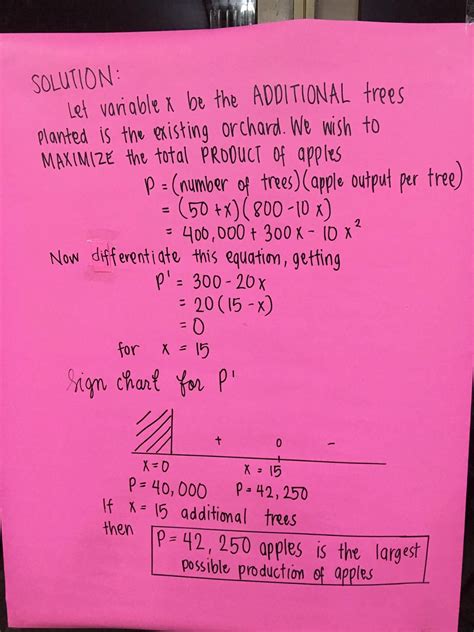 SOLUTION:
Let variable x be the ADDITIONAL trees
planted is the existing orchard. We wish to
MAXIMIZE the total PRODUCT of apples
P = (number of trees)(apple output per tree)
= (50 + x)(800 - 10 x)
= 400,000 + 300 x - 10 x²
Now differentiate this equation, getting
P' = 300 - 20 x
= 20 (15 - x)
= 0
for x = 15
Sign chart for P'
+ 0 -
x = 0 x = 15
P = 40,000 P = 42, 250
If x = 15 additional trees
then
P = 42, 250 apples is the largest
possible production of apples